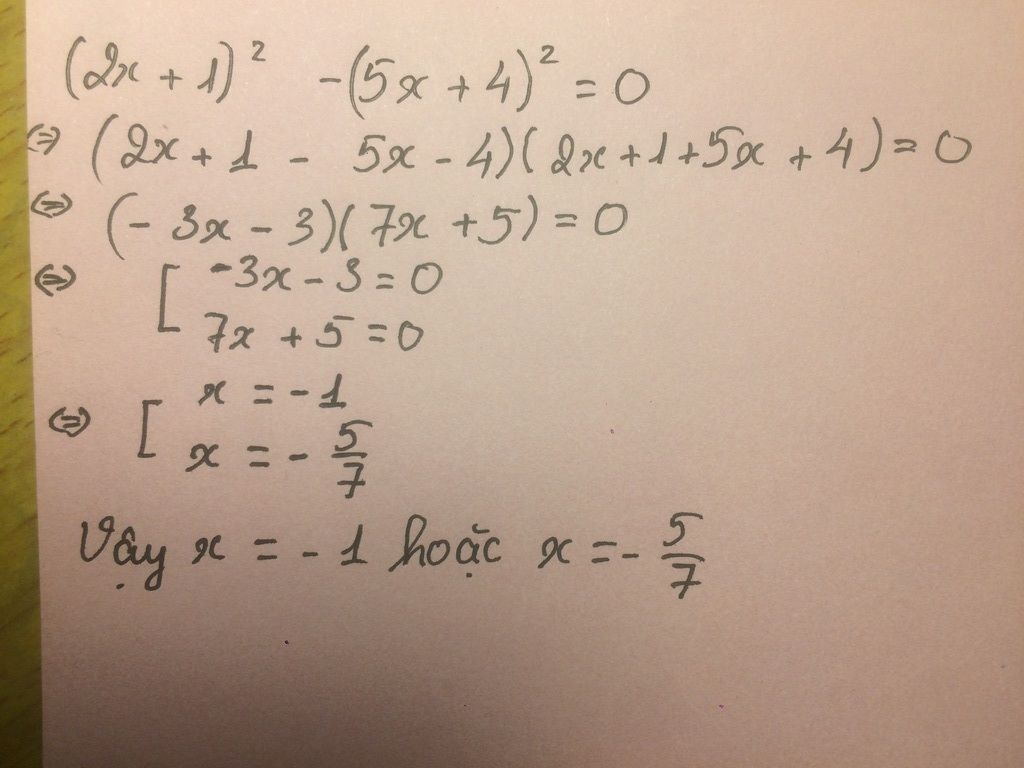 (2x + 1)² - (5x + 4)² = 0
⇔ (2x + 1 - 5x - 4)(2x + 1 + 5x + 4) = 0
⇔ (- 3x - 3)(7x + 5) = 0
⇔ [ -3x - 3 = 0
7x + 5 = 0
⇔ [ x = - 1
x = - 5/7
Vậy x = - 1 hoặc x = - 5/7